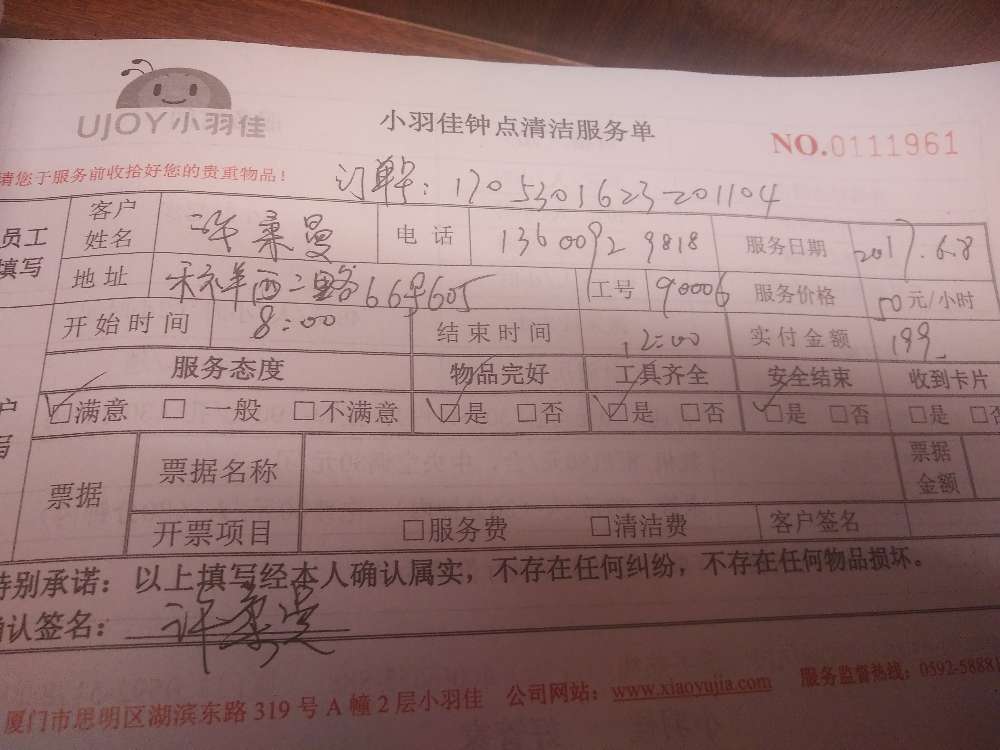 UJOY小羽佳
小羽佳钟点清洁服务单
NO.0111961
请您于服务前收拾好您的贵重物品!
订单号: 1705301623201104
员工填写 客户姓名 许柔曼 电话 13600929818 服务日期 2017.6.8
地址 禾祥西二路66号605 工号 90006 服务价格 50元/小时
开始时间 8:00 结束时间 12:00 实付金额 199
服务态度 物品完好 工具齐全 安全结束 收到卡片
☑满意 □一般 □不满意 ☑是 □否 ☑是 □否 ☑是 □否 □是 □否
票据 票据名称 票据金额
开票项目 □服务费 □清洁费 客户签名
特别承诺:以上填写经本人确认属实,不存在任何纠纷,不存在任何物品损坏。
确认签名: 许柔曼
厦门市思明区湖滨东路319号A幢2层小羽佳 公司网站:www.xiaoyujia.com 服务监督热线:0592-5888